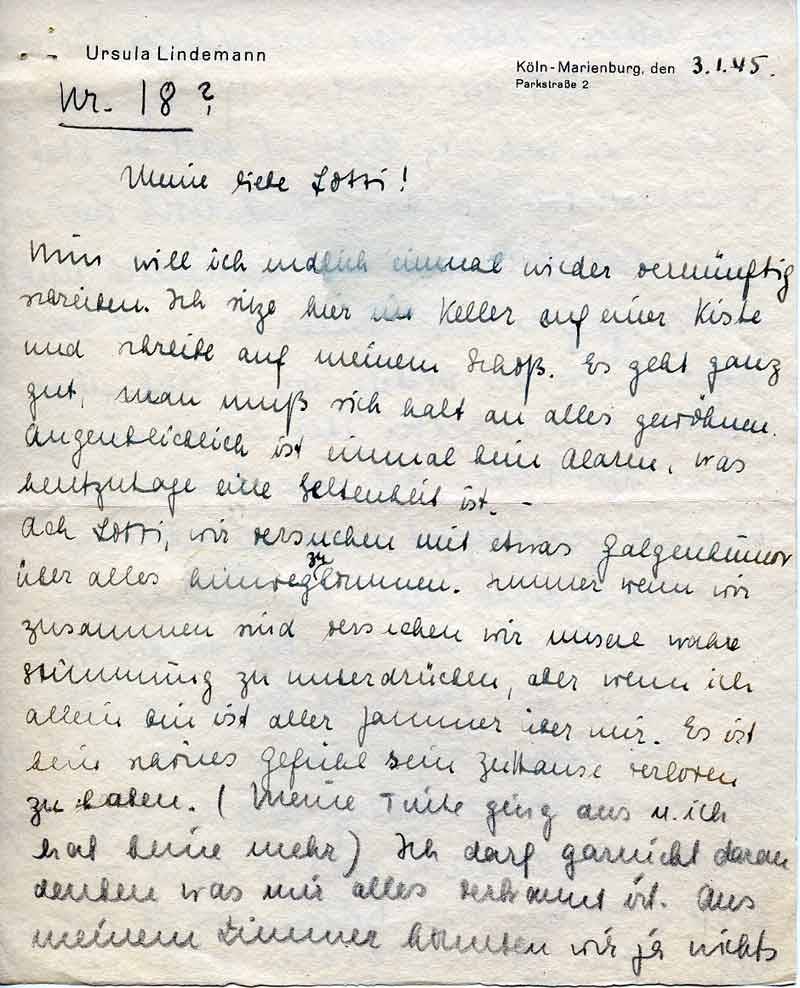 Ursula Lindemann
Köln-Marienburg, den 3.1.45.
Parkstraße 2
Nr. 18?
Meine liebe Lotti!
Nun will ich endlich einmal wieder vernünftig
schreiben. Ich sitze hier im Keller auf einer Kiste
und schreibe auf meinem Schoß. Es geht ganz
gut, man muß sich halt an alles gewöhnen.
Augenblicklich ist einmal kein Alarm, was
heutzutage eine Seltenheit ist. -
Ach Lotti, wir versuchen mit etwas Galgenhumor
über alles hinwegzukommen. Immer wenn wir
zusammen sind versuchen wir unsere wahre
Stimmung zu unterdrücken, aber wenn ich
allein bin ist aller Jammer über mir. Es ist
kein schönes Gefühl sein Zuhause verloren
zu haben. (Meine Tinte ging aus u. ich
hab keine mehr) Ich darf garnicht daran
denken was mir alles verbrannt ist. Aus
meinem Zimmer konnten wir ja nichts